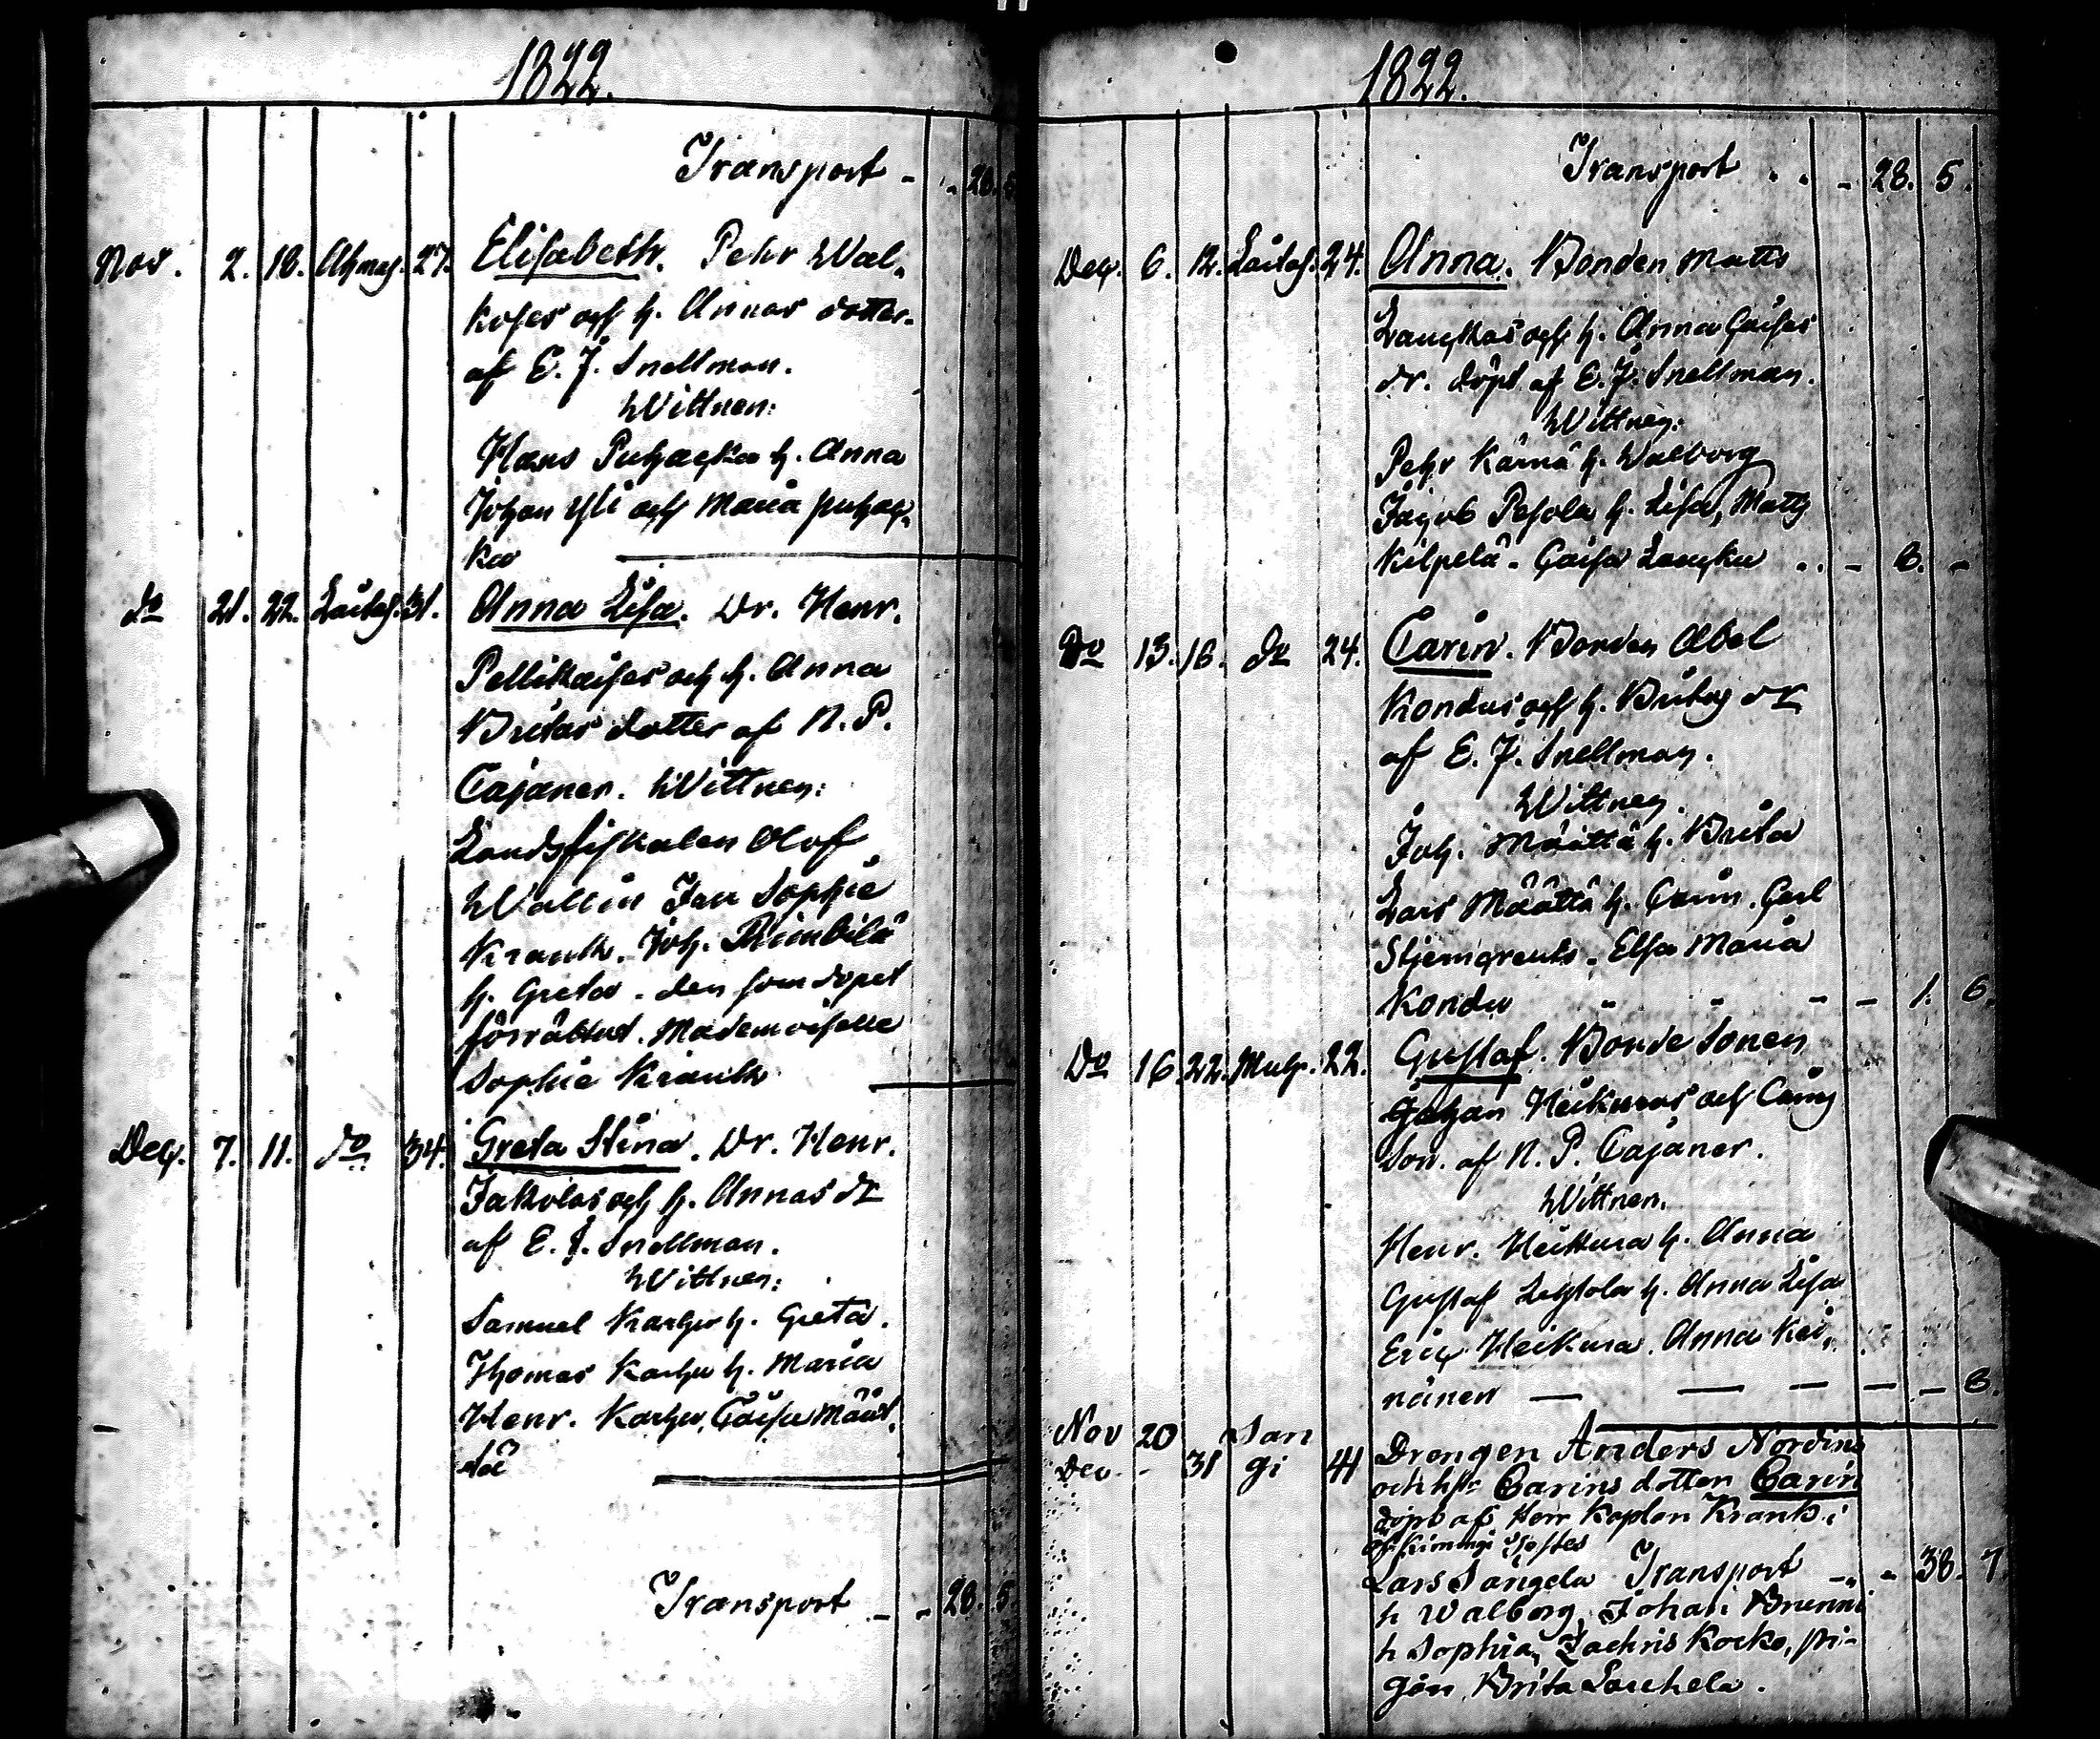 1822.
Transport - - 28. 5
Nov. 2. 18. Ahmas. 27. Elisabeth. Pehr Wal-
koses och h. Annas dotter.
af E. J. Snellman.
Wittnen:
Hans Puhacka h. Anna
Johan Yli och Maria puhac-
ka
do 21. 22. Laitas. 31. Anna Lisa. Dr. Henr.
Pellikaises och h. Anna
Britas dotter af N. P.
Cajaner. Wittnen:
Landsfiskalen Olof
Wallin Jan Sophie
Krank. Joh. Rimbilä
h. Greta. den som dopet
förrättat. Mademoiselle
Sophie Krank
Dec. 7. 11. do 34. Greta Stina. Dr. Henr.
Jakolas och h. Annas dr
af E. J. Snellman.
Wittnen:
Samuel Karhu h. Greta.
Thomas Karhu h. Maria
Henr. Karhu, Caisa Määt-
tä
Transport - - 28. 5.
1822.
Transport . . - 28. 5.
Dec. 6. 12. Laitas. 24. Anna. Bonden Matts
Lauckas och h. Anna Caisas
dr. döpt af E. J. Snellman.
Wittnen:
Pehr Kärnä h. Walborg
Jacob Pesola h. Lisa, Matts
Kilpelä. Caisa Laucka . . - 8. -
Do 13. 16. do 24. Carin. Bonden Abel
Kondus och h. Britas dr
af E. J. Snellman.
Wittnen.
Joh. Määttä h. Brita
Lars Määttä h. Carin. Carl
Stjerncreutz. Elsa Maria
Kondu - - - - 1. 6.
Do 16. 22. Muh. 22. Gustaf. Bonde Sonen
Johan Heikuras och Carins
Son. af N. P. Cajaner.
Wittnen.
Henr. Heikura h. Anna
Gustaf Lehtola h. Anna Lisa
Eric Heikura. Anna Kai-
nänen — — — — - 8.
Nov 20 San
Dec. - 31 gi 41 Drengen Anders Nordins
och hstr Carins dotter Carin
döpt af Herr Kaplan Krank i
Kiminge Testes
Lars Sangela Transport - - 38. 7
h Walborg, Johan Brunni
h Sophia, Zachris Kocko, pi-
gan Brita Laukela.